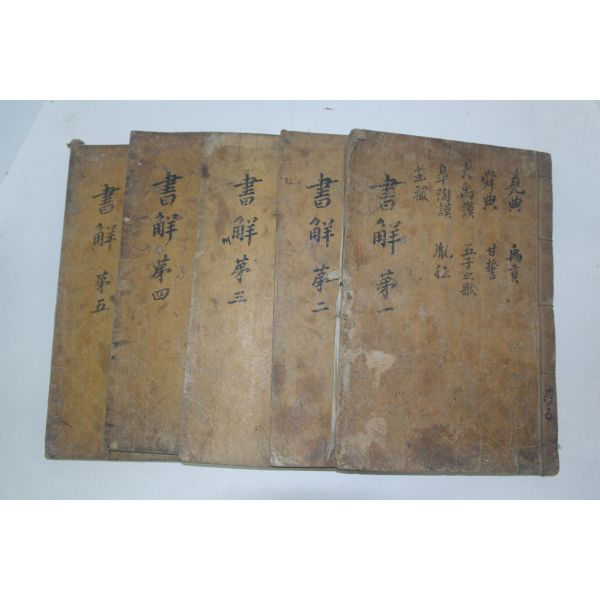 堯典 禹貢
舜典 甘誓
大禹謨 五子之歌
皐陶謨 胤征
益稷
書觧 苐一
共五
書觧 苐二
書觧 苐三
書觧 苐四
書觧 苐五